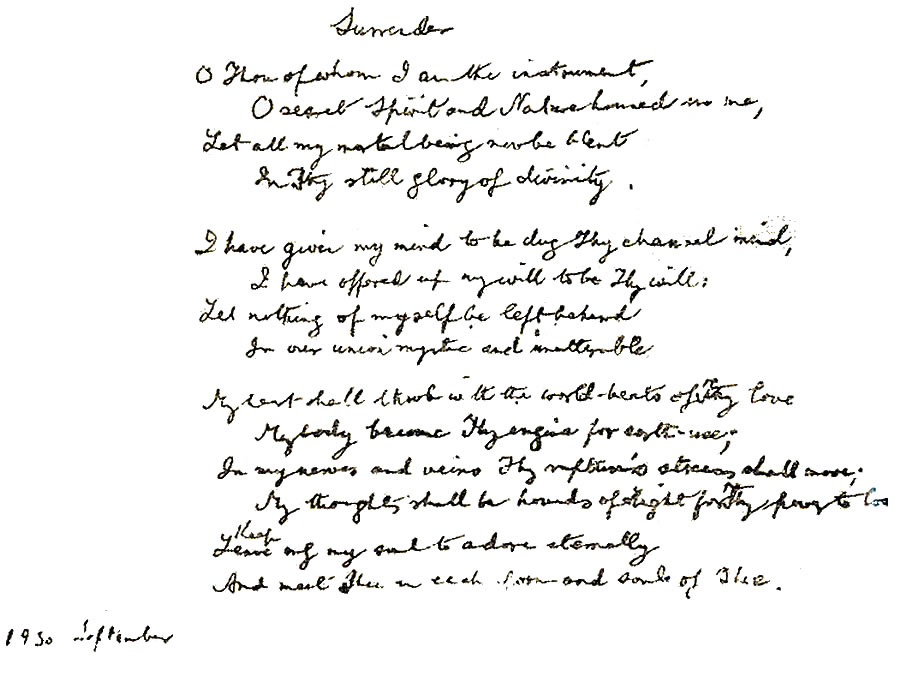 Surrender
O Thou of whom I am the instrument,
O secret Spirit and Nature housed in me,
Let all my mortal being now be blent
In Thy still glory of divinity.
I have given my mind to be dug Thy channel mind,
I have offered up my will to be Thy will:
Let nothing of myself be left behind
In our union mystic and unutterable
My heart shall throb with the world-beats of Thy love
My body become Thy engine for earth-use;
In my nerves and veins Thy rapture's streams shall move;
My thoughts shall be hounds of Light for Thy power to loose
Keep
Leave only my soul to adore eternally
And meet Thee in each form and soul of Thee.
September